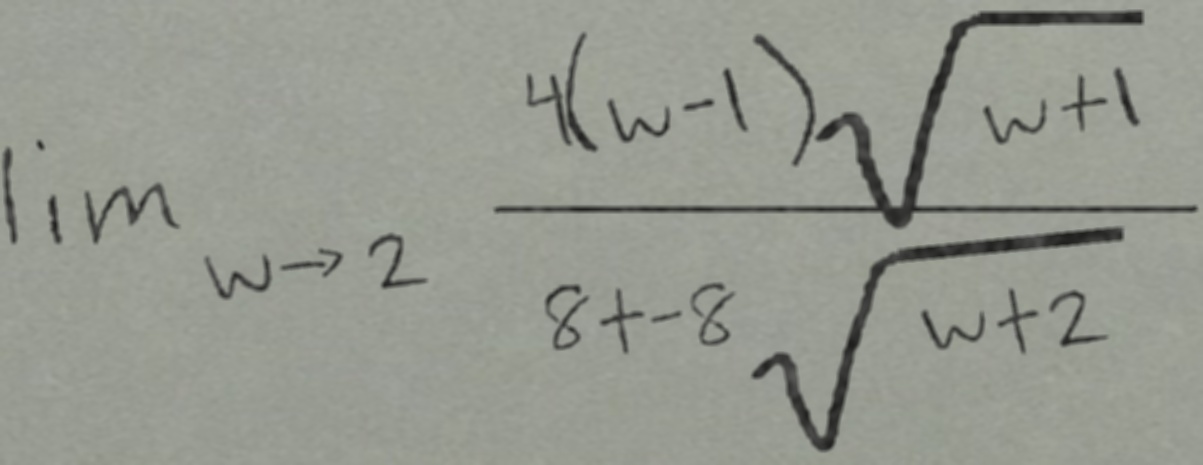 lim w→2 4(w-1)√w+1 / 8+-8√w+2